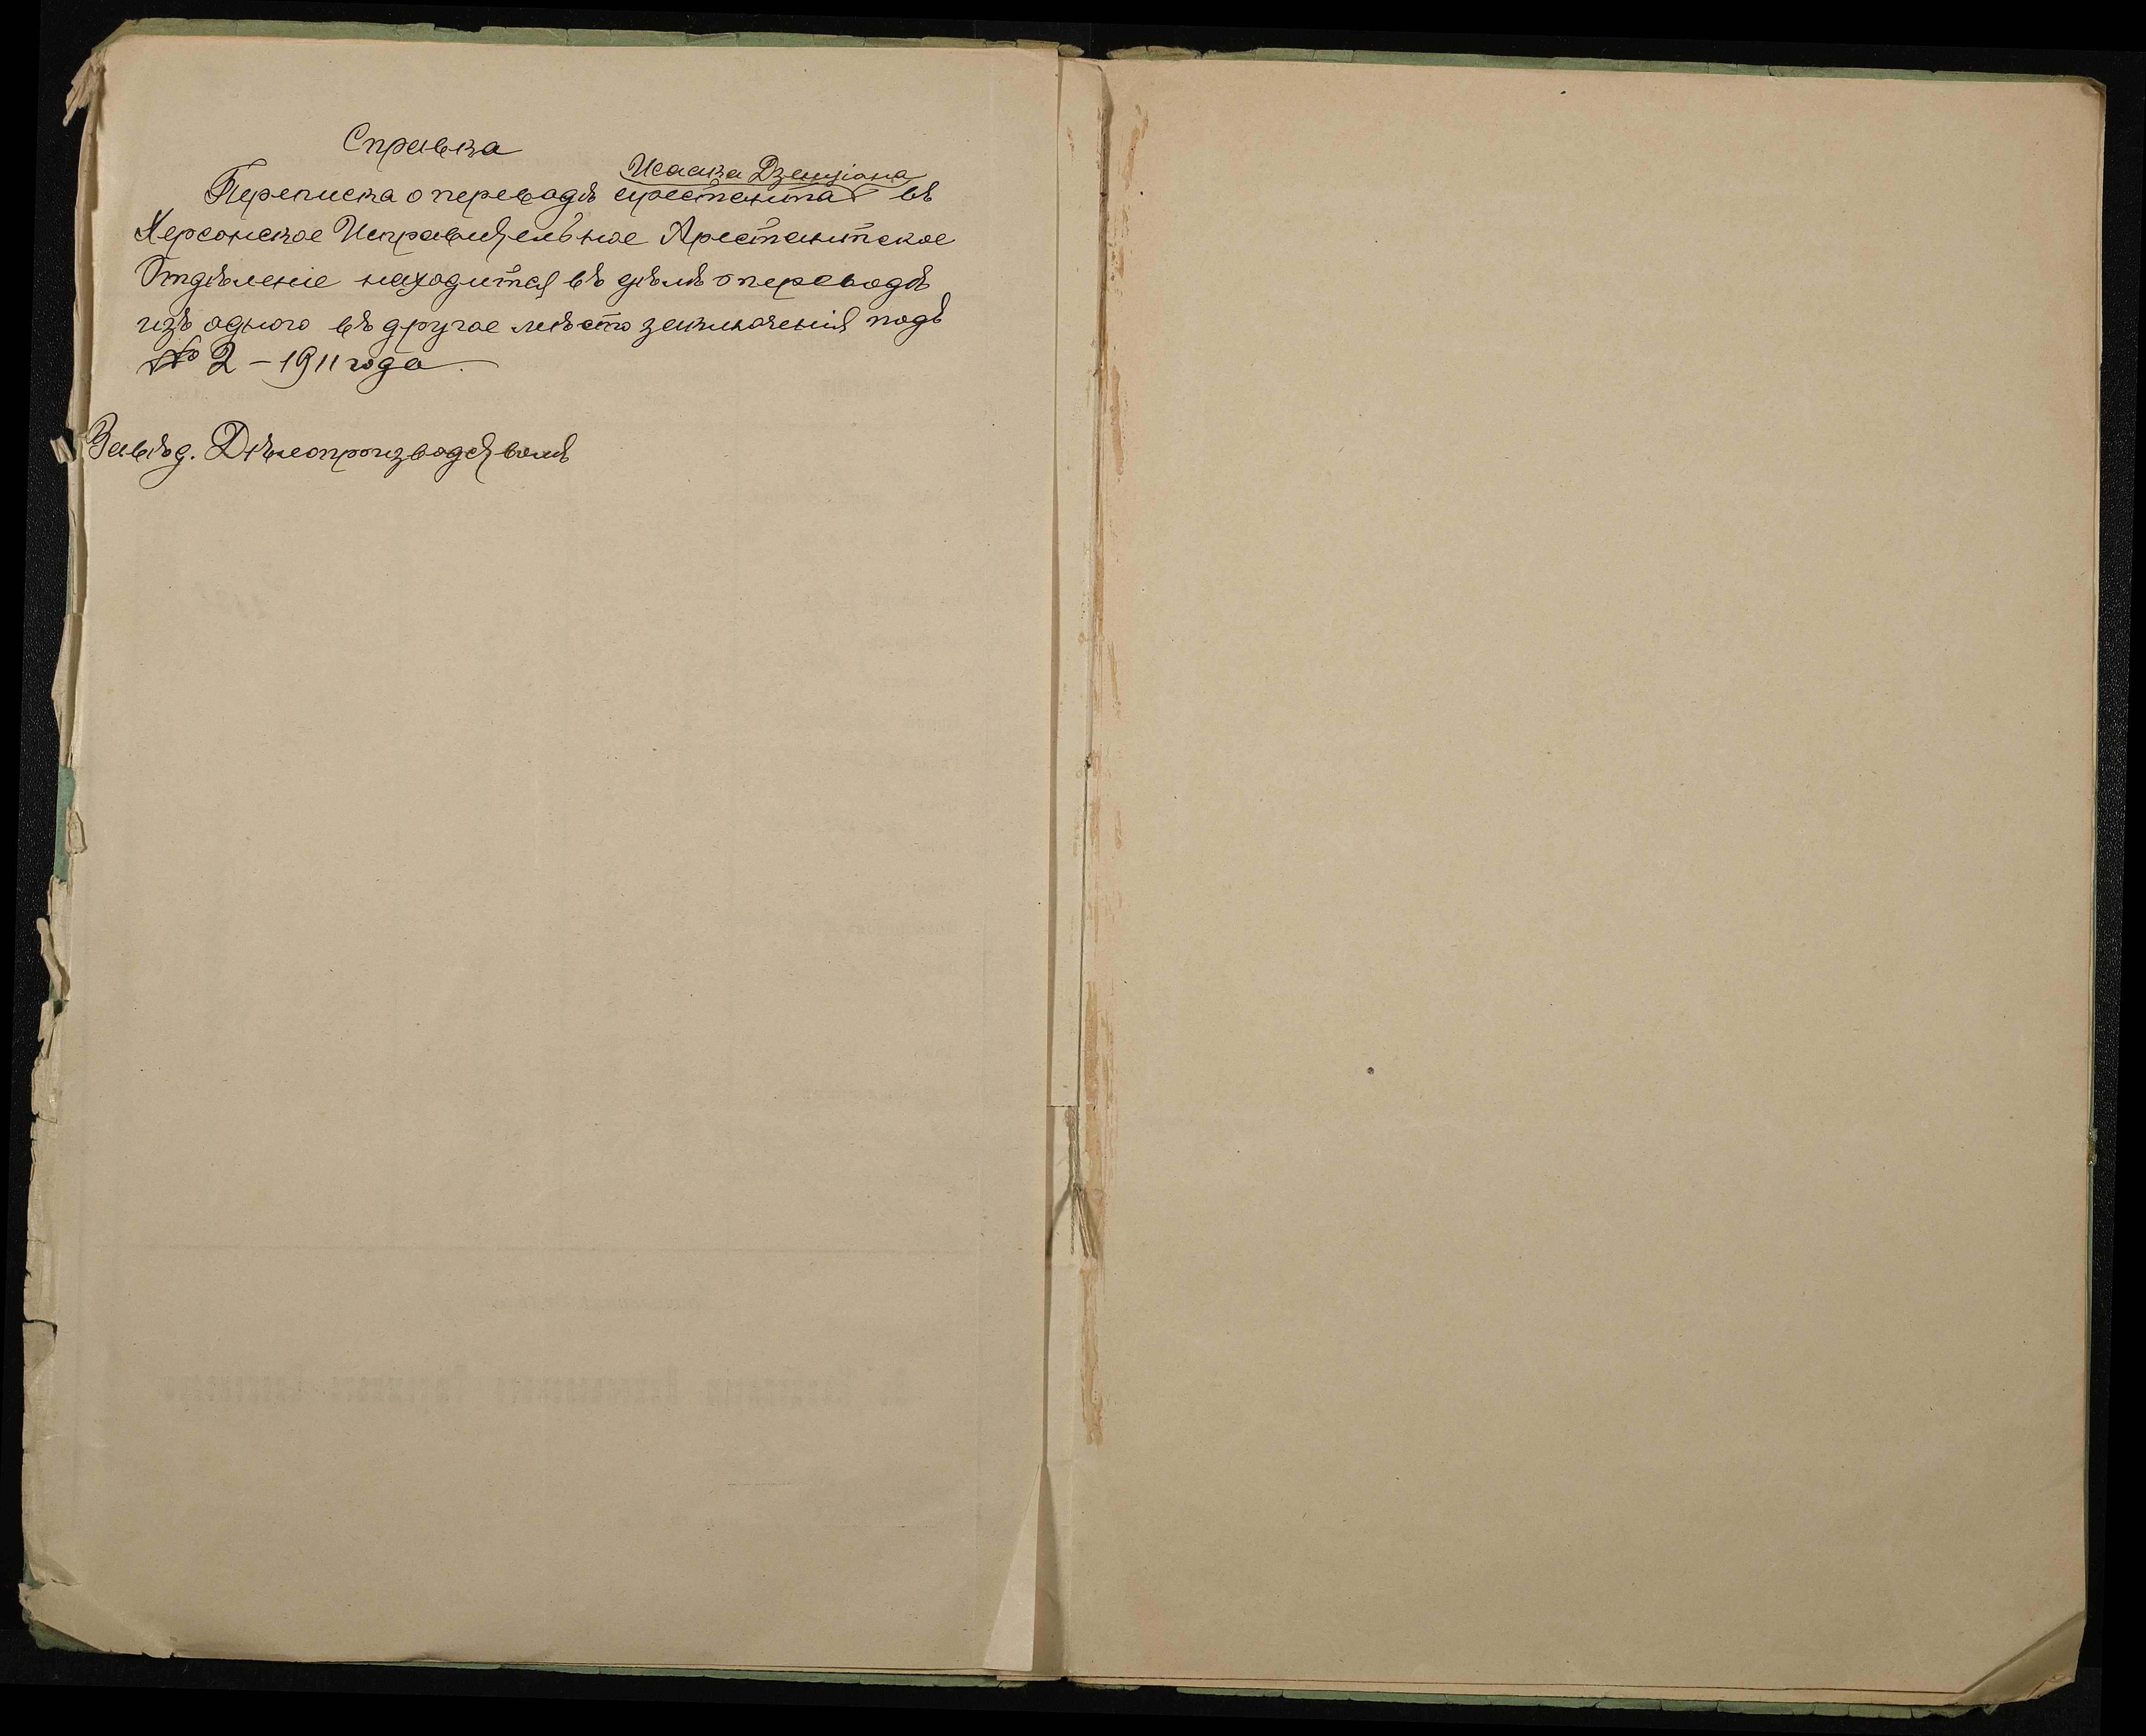 Справка
Исаака Дзенціона
Переписка о переводѣ арестанта въ
Херсонское Исправительное Арестантское
Отдѣленіе находится въ дѣлѣ о переводѣ
изъ одного въ другое мѣсто заключенія подъ
№ 2 – 1911 года.
Завѣд. Дѣлопроизводствомъ